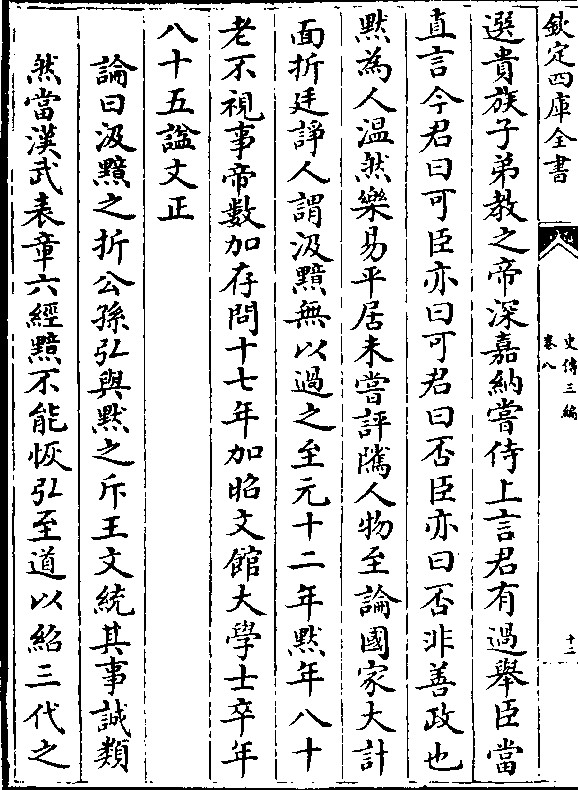 欽定四庫全書
史傳三編
卷八
十二
選貴族子弟教之帝深嘉納嘗侍上言君有過舉臣當
直言今君曰可臣亦曰可君曰否臣亦曰否非善政也
默為人温然樂易平居未嘗評隲人物至論國家大計
面折廷諍人謂汲黯無以過之至元十二年默年八十
老不視事帝數加存問十七年加昭文館大學士卒年
八十五諡文正
論曰汲黯之折公孫弘與默之斥王文統其事誠類
然當漢武表章六經黯不能恢弘至道以紹三代之